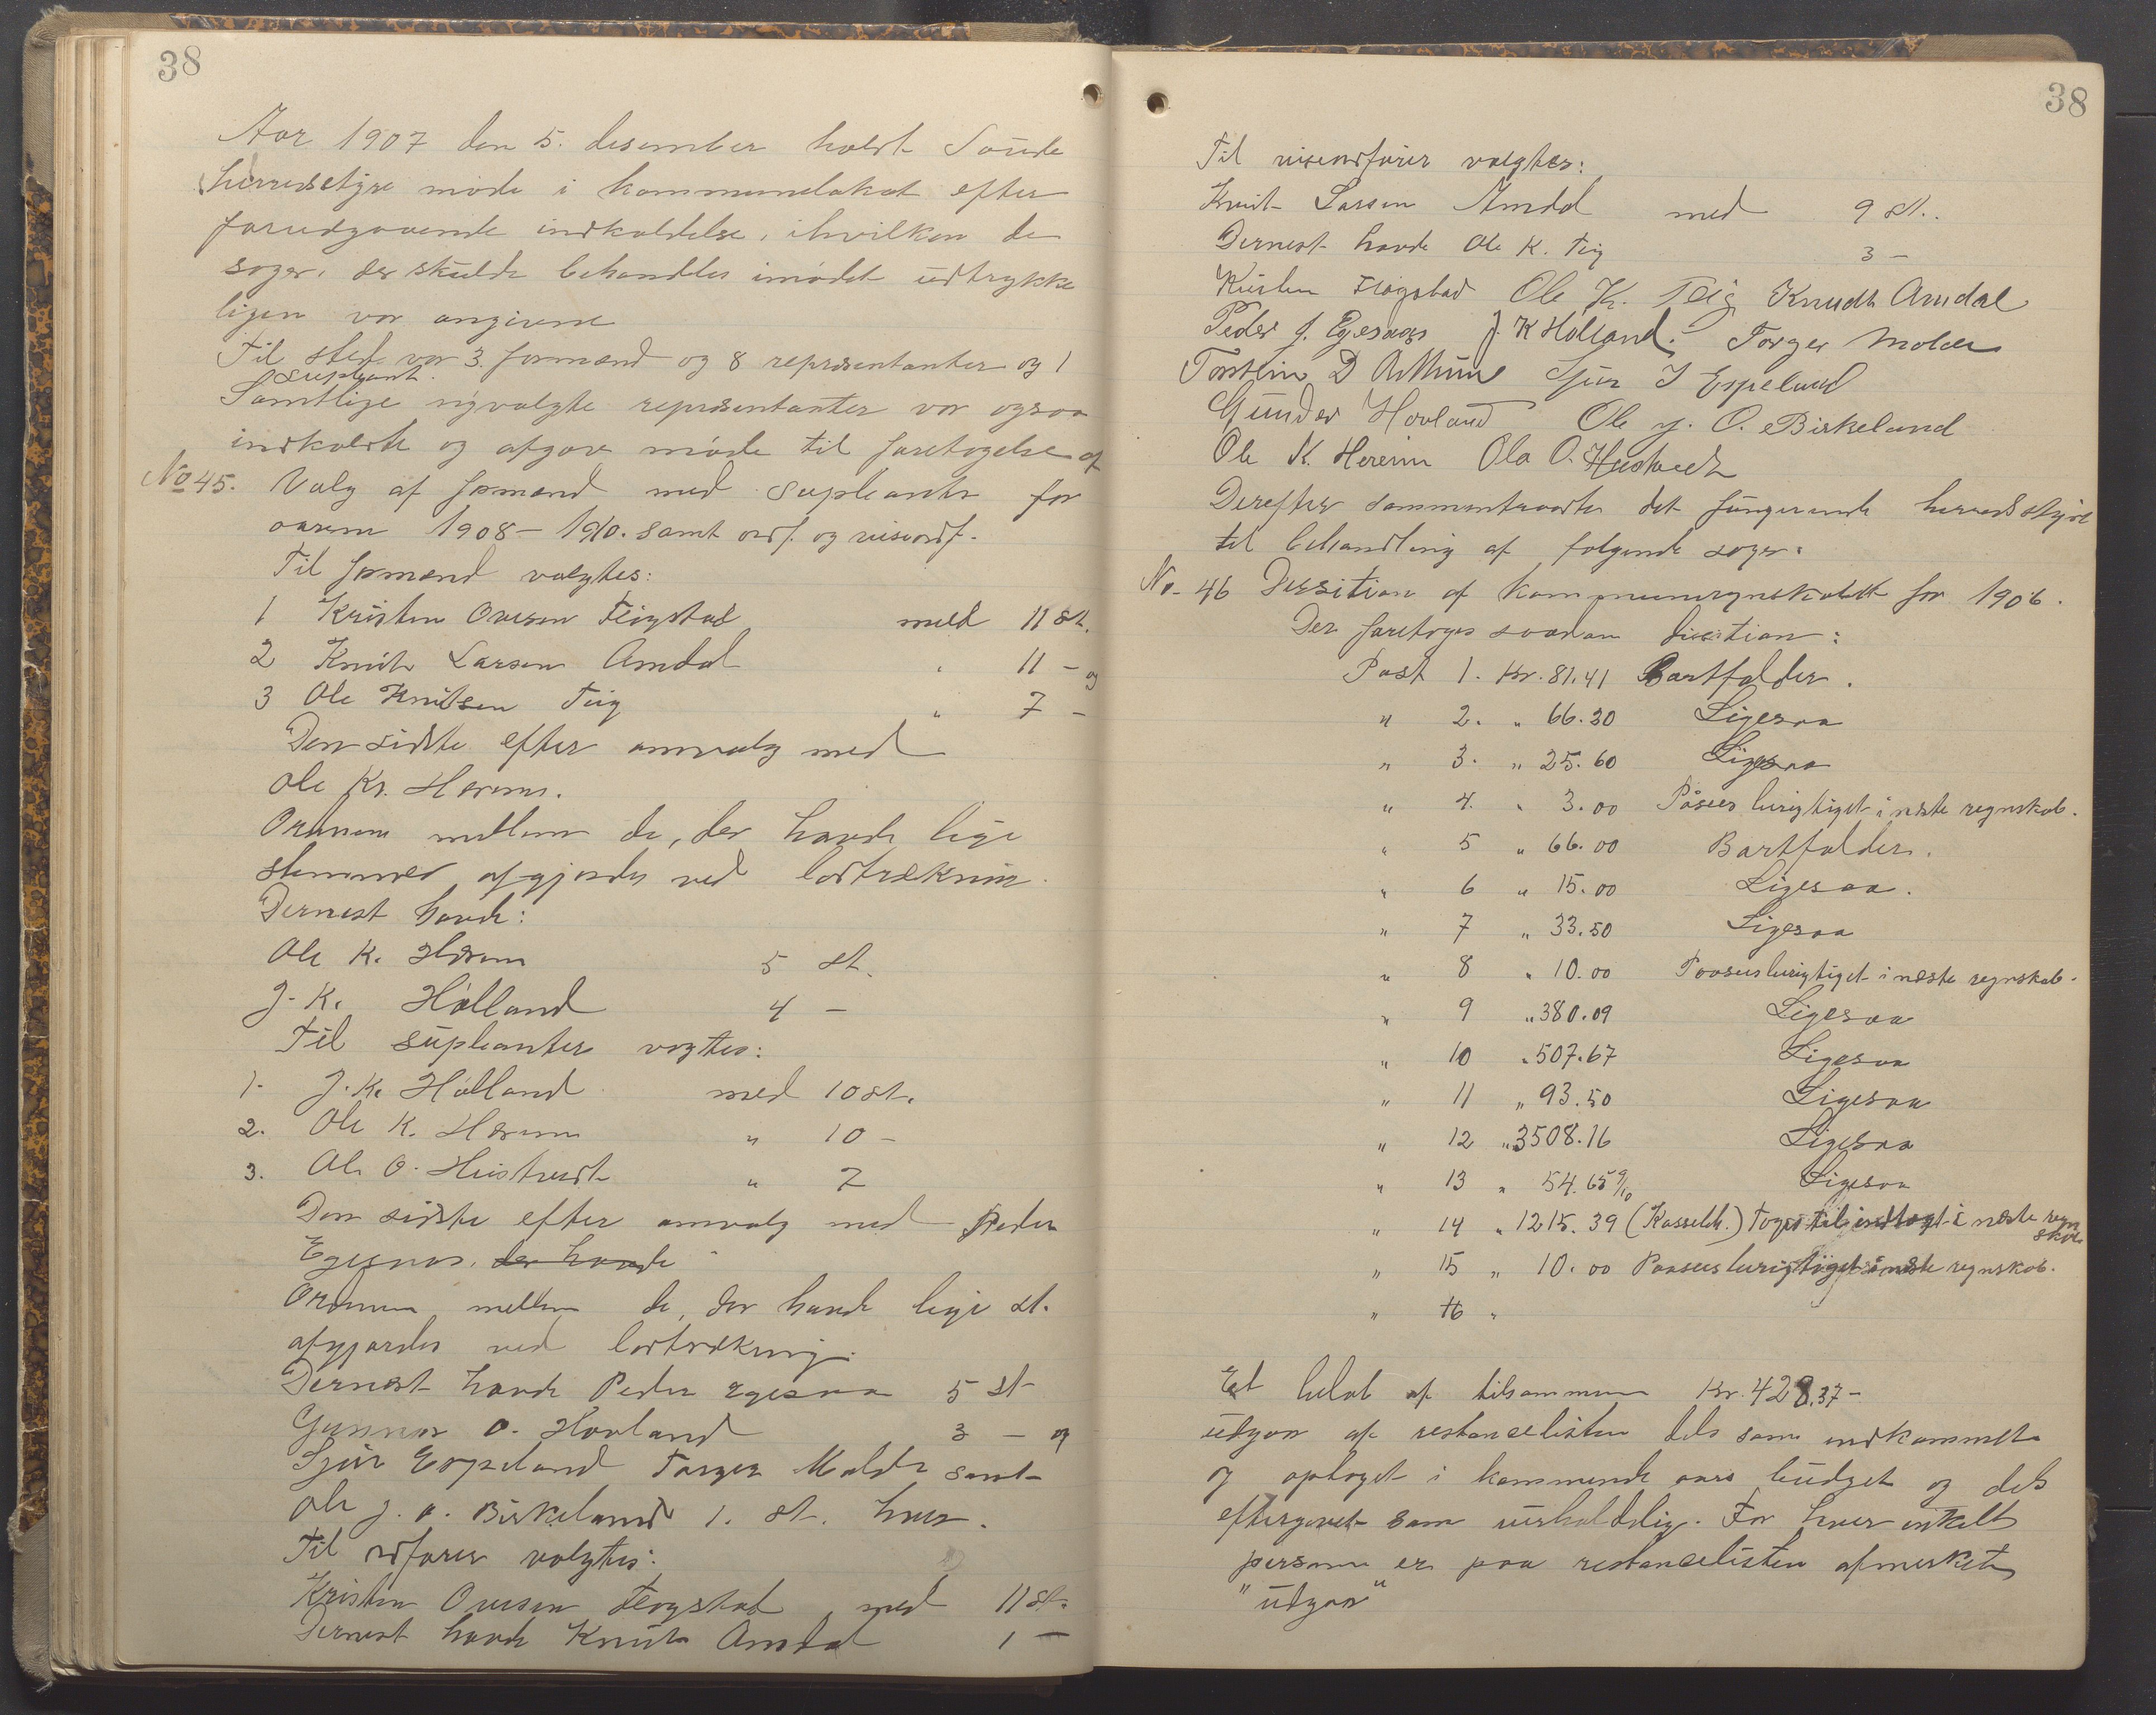 38
Aar 1907 den 5. desember holdt Saude
herredstyre møde i kommunelokal efter
forudgaaende indkaldelse, ihvilken de
sager, der skulde behandles imødet udtrykke
ligen var angivene
Til sted var 3 formænd og 8 repræsentanter og 1
supleant.
Samtlige nyvalgte repræsentanter var ogsaa
indkaldte og afgav møde til foretagelse af
No 45. Valg af formænd med supleanter for
aarene 1908 - 1910. samt ordf. og viseordf.
Til formænd valgtes:
1 Kristen Ovesen Fløgstad med 11 st.
2 Knut Larsen Amdal " 11 - og
3 Ole Knutsen Teig " 7 -
Den sidste efter omvalg med
Ole Kr. Hereim.
Ordenen mellem de, der havde lige
stemmer afgjordes ved lodtrækning.
Dernest havde:
Ole K. Hereim 5 st.
J. K. Hølland 4 -
Til supleanter valgtes:
1. J. K. Hølland med 10 st.
2. Ole K. Hereim " 10 -
3. Ole O. Hustvedt " 7
Den sidste efter omvalg med Peder
Egesnes. der havde
Ordenen mellem de, der havde lige st.
afgjordes ved lodtrækning.
Dernest havde Peder Egesaa 5 st
Gunnar O. Hovland 3 - og
Sjur Espeland Torger Molde samt
Ole J. O. Birkeland 1. st. hver.
Til ordfører valgtes:
Kristen Ovesen Fløgstad med 11 st.
Dernest havde Knut Amdal 1 -
38
Til viseordfører valgtes:
Knut Larsen Amdal med 9 st.
Dernest havde Ole K. Teig 3 -
Kristen Fløgstad Ole K. Teig Knudt Amdal
Peder J. Egesaas J. K Hølland. Torger Molde
Torstein D Østhuus Sjur J Espeland
Gunder Hovland Ole J. O. Birkeland
Ole K. Hereim Ola O. Hustvedt
Derefter sammentraadte det fungerende herredsstyre
til behandling af følgende sager:
No. 46 Desition af kommuneregnskabet for 1906.
Der foretoges saadan desition:
Post 1. Kr. 81.41 Bortfalder.
" 2. " 66.20 Ligesaa
" 3. " 25.60 Ligesaa
" 4. " 3.00 Påsees berigtiget i neste regnskab.
" 5 " 66.00 Bortfalder.
" 6 " 15.00 Ligesaa.
" 7 " 33.50 Ligesaa
" 8 " 10.00 Paasees berigtiget i neste regnskab.
" 9 " 380.09 Ligesaa
" 10 " 507.67 Ligesaa
" 11 " 93.50 Ligesaa
" 12 " 3508.16 Ligesaa
" 13 " 54.65 9/10 Ligesaa
" 14 " 1215.39 (Kassebh.) Tages til indtægt i neste regn
skab
" 15 " 10.00 Paasees berigtiget i neste regnskab.
" 16 "
Et beløb af tilsammen Kr. 428.37 -
udgaar af restancelisten dels som indkommet
og optaget i kommende aars budget og dels
eftergivet som uerholdelig. For hver enkelt
persom er paa restancelisten afmerket
"udgaar"